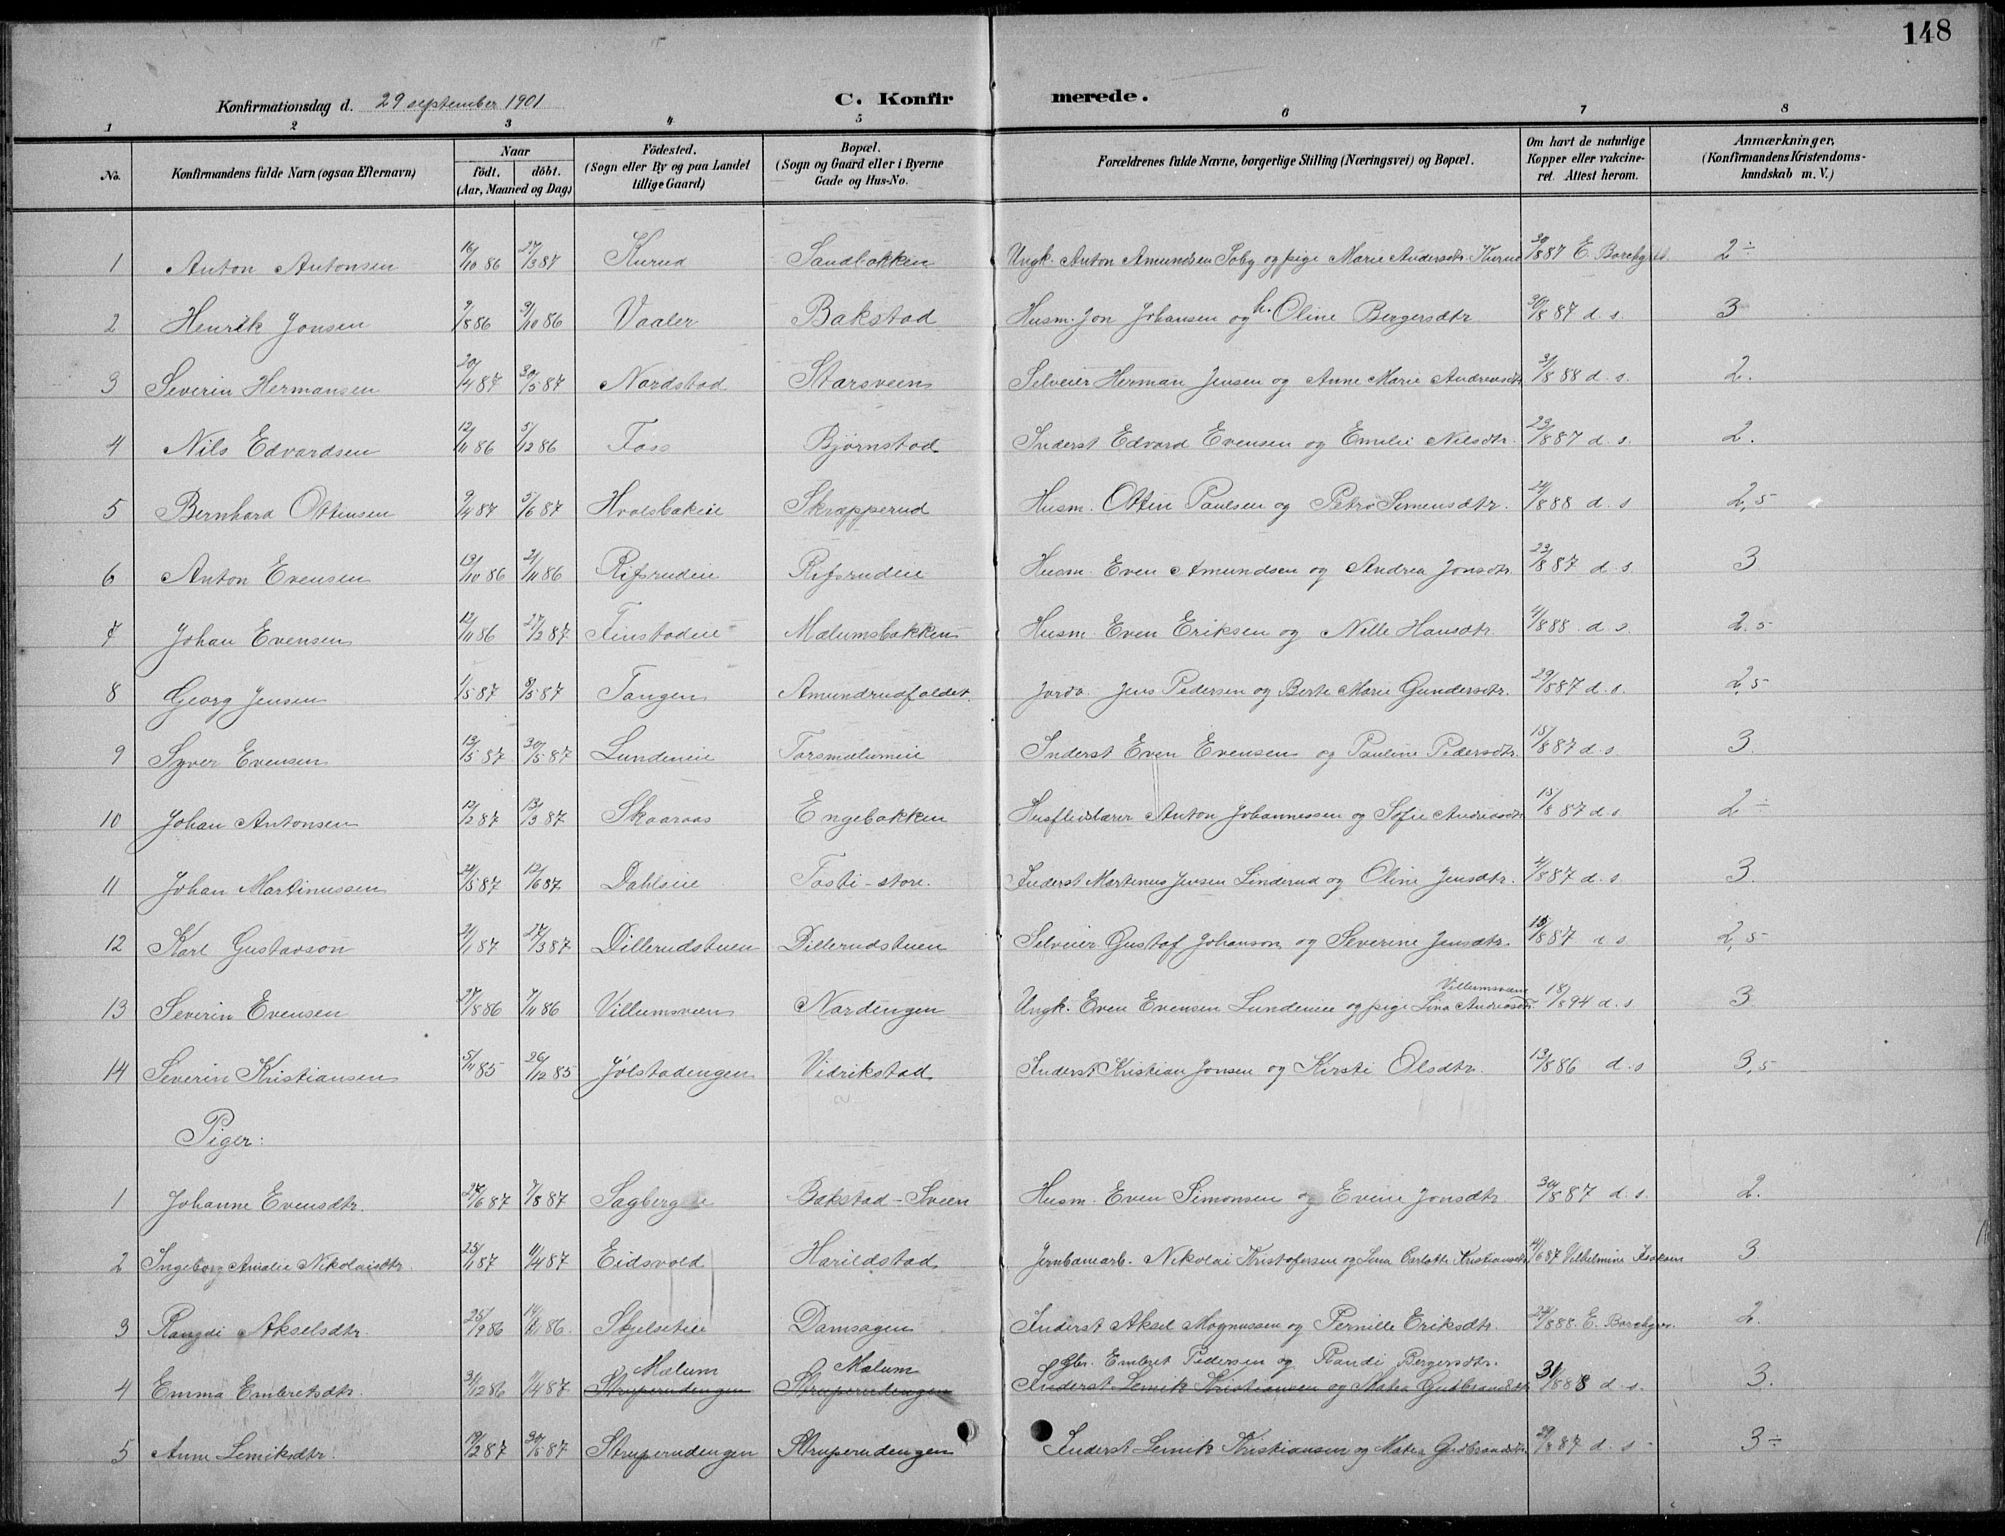 148
Konfirmationsdag d. 29 september 1901 C. Konfirmerede.
1 2 3 4 5 6 7 8
No. Konfirmandens fulde Navn (ogsaa Efternavn) Naar födt. döbt. (Aar, Maaned og Dag) Födested. (Sogn eller By og paa Landet tillige Gaard) Bopæl. (Sogn og Gaard eller i Byerne Gade og Hus-No. Forældrenes fulde Navne, borgerlige Stilling (Næringsvei) og Bopæl. Om havt de naturlige Kopper eller vakcineret. Attest herom. Anmærkninger, (Konfirmandens Kristendomskundskab m. V.)
1 Anton Antonsen 16/10 86 27/3 87 Kurud Sandbakken Ungk. Anton Amundsen Soby og pige Marie Andersdtr. Kurud 30/8 87 E. Borchgrev 2÷
2 Henrik Jonsen 9/8 86 3/10 86 Vaaler Bakstad Husm. Jon Johansen og h. Oline Bergersdtr 30/8 87 d. s. 3
3 Severin Hermansen 20/4 87 30/5 87 Nordstad Starsveen Selveier Herman Jensen og Anne Marie Andreasdtr 31/8 88 d. s. 2.
4 Nils Edvardsen 12/11 86 5/12 86 Foss Bjørnstad Inderst Edvard Evensen og Emilie Nilsdtr. 23/8 87 d. s. 2.
5 Bernhard Ottinsen 9/4 87 5/6 87 Hvalsbakeie Skrapperud Husm. Ottin Paulsen og Petra Simensdtr. 24/8 88 d. s 2,5
6 Anton Evensen 13/10 86 21/11 86 Rifsrudeie Rifsrudeie Husm. Even Amundsen og Andrea Jonsdtr 23/8 87 d. s. 3
7 Johan Evensen 12/11 86 27/2 87 Finstadeie Mælumsbakken Husm. Even Eriksen og Nille Hansdtr. 4/8 88 d. s. 2.5
8 Georg Jensen 1/5 87 8/5 87 Tangen Amundrudfaldet. Jordb. Jens Pedersen og Berte Marie Gundersdtr. 29/8 87 d. s. 2,5
9 Syver Evensen 13/5 87 30/5 87 Lundeeie Torsmælumeie Inderst Even Evensen og Pauline Pedersdtr. 15/8 87 d. s. 3.
10 Johan Antonsen 12/2 87 13/3 87 Skaaraas Engebakken Husflidslærer Anton Johannessen og Sofie Andreasdtr 15/8 87 d s. 2÷
11 Johan Martinussen 24/5 87 12/6 87 Dahlseie Tosti-store. Inderst Martinus Jensen Linderud og Oline Jensdtr. 4/8 87 d. s. 3.
12 Karl Gustavson 21/1 87 27/3 87 Dillerudstuen Dillerudstuen Selveier Gustaf Johanson og Severine Jensdtr. 15/8 87 d s. 2,5
13 Severin Evensen 27/8 86 7/11 86 Villumsveen Nordengen Ungk. Even Evensen Lundeeie og pige Lina Andreasdtr. Villumsveen 18/8 94 d. s 3
14 Severin Kristiansen 5/11 85 26/12 85 Jølstadengen Vidrikstad Inderst Kristian Jonsen og Kirsti Olsdtr. 13/8 86 d. s 3,5
Piger:
1 Johanne Evensdtr. 27/6 87 7/8 87 Sagberg Bakstad-Sveen Husm. Even Simonsen og Eveine Jonsdtr. 30/8 87 d. s. 2.
2 Ingeborg Amalie Nikolaisdtr. 25/1 87 11/4 87 Eidsvold Harildstad Jernbanearb. Nikolai Kristofersen og Lina Carlotte Kristiansdtr 14/6 87 Vilhelmine Isaksen 3
3 Rangdi Akselsdtr. 25/9 86 14/11 86. Skjelseteie Damsagen Inderst Aksel Magnussen og Pernille Eriksdtr. 24/8 88. E. Borchgrev. 2.
4 Emma Embretsdtr. 31/12 86 11/4 87 Mælum Struperudengen Mælum Struperudengen Gbr. Embret Pedersen og Randi Bergersdtr. Inderst Lemik Kristiansen og Mathea Gudbrandsdtr 31/8 88 d. s. 3.
5 Anne Lemiksdtr. 19/2 87 30/5 87 Struperudengen Struperudengen Inderst Lemik Kristiansen og Mathea Gudbrandsdtr 29/8 87 d. s 3÷